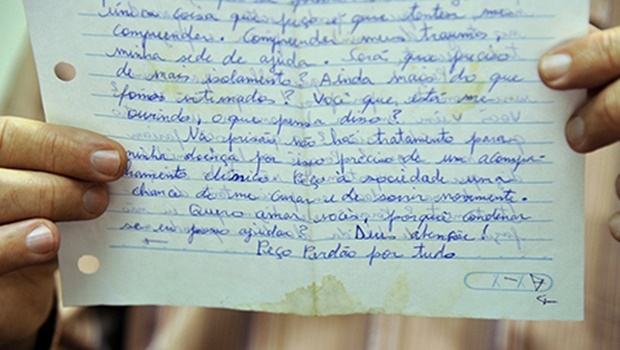 única coisa que peço é que tentem me
compreender. Compreender meus traumas,
minha sede de ajuda. Será que preciso
de mais isolamento? Ainda mais do que
fomos internados? Você que está me
ouvindo, o que pensa disso?
Na prisão não há tratamento para
minha doença por isso preciso de um acompa-
nhamento clínico. Peço à sociedade uma
chance de me curar e de sorrir novamente.
Quero amar vocês, porquê condenar
se eu posso ajudar? Deu atenção!
Peço Perdão por tudo